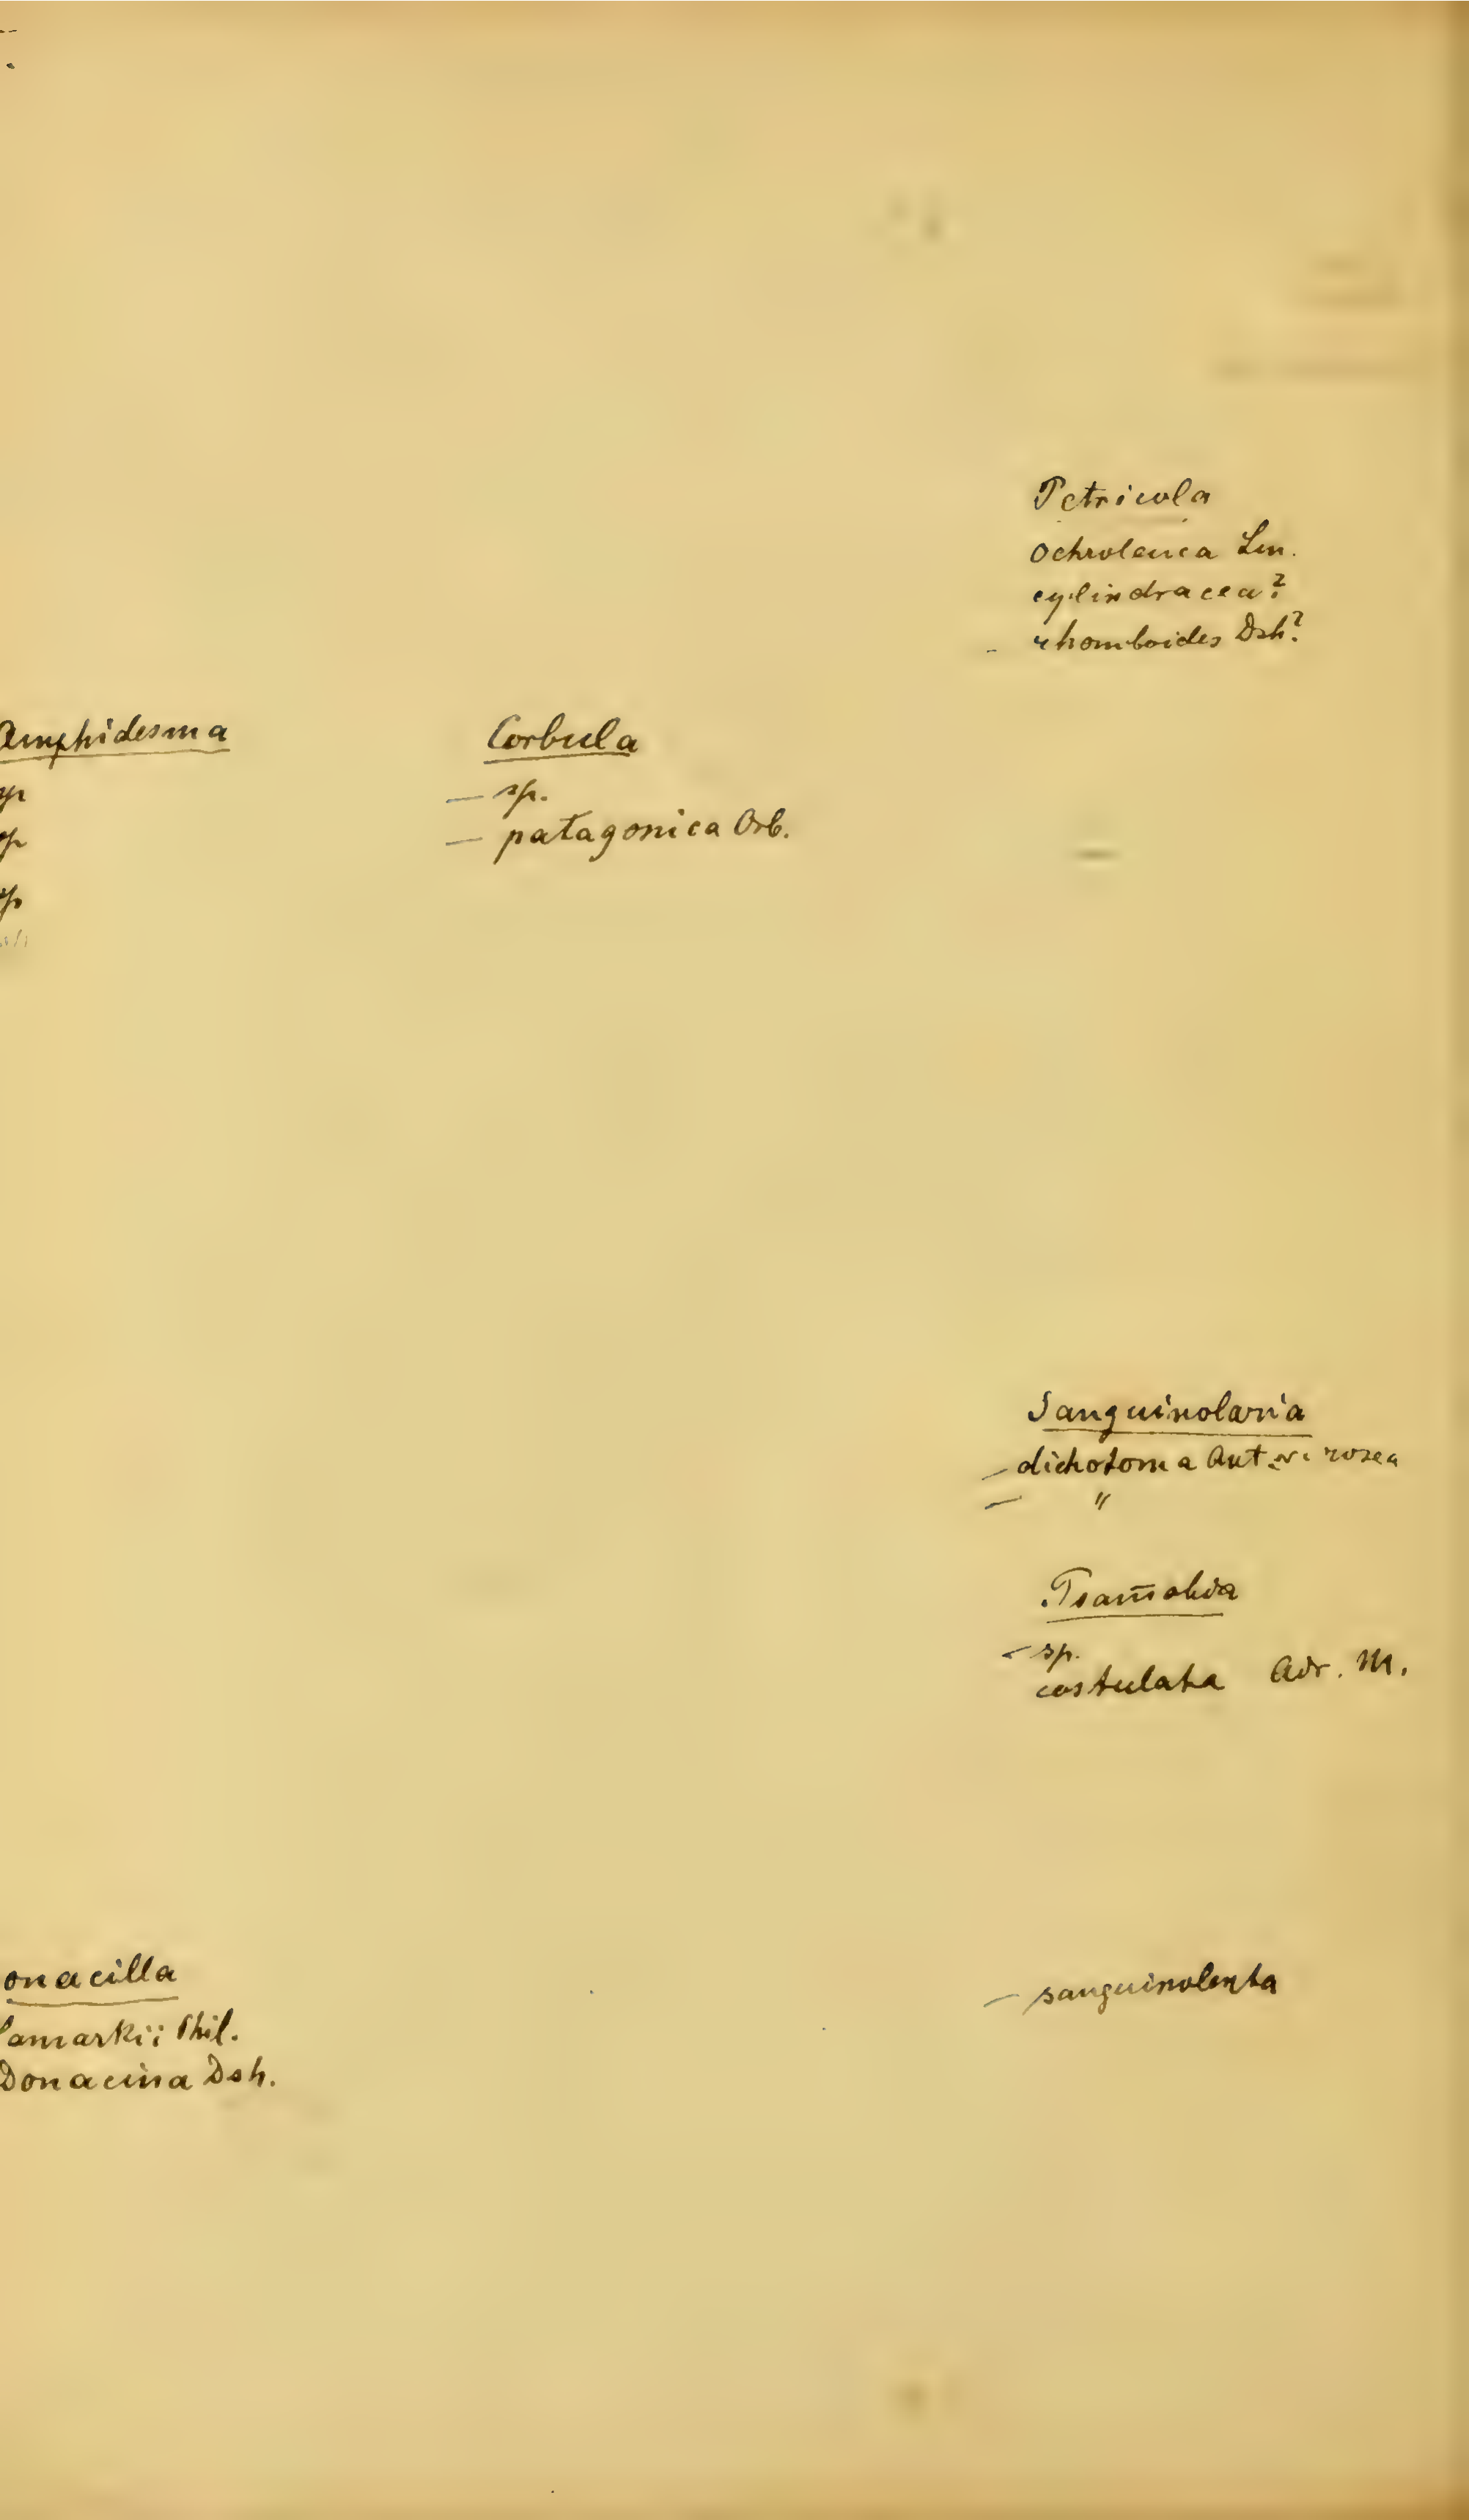 Petricola
ochroleuca Lm.
cylindracea?
- rhomboides Dsh?
Amphidesma
sp
sp
sp
Corbula
— sp.
— patagonica Orb.
Sanguinolaria
— dichotoma Ant. v. rosea
— "
Psam̄obia
— sp.
costulata Adr. M.
onacilla
Lamarkii Phil.
Donacina Dsh.
— sanguinolenta